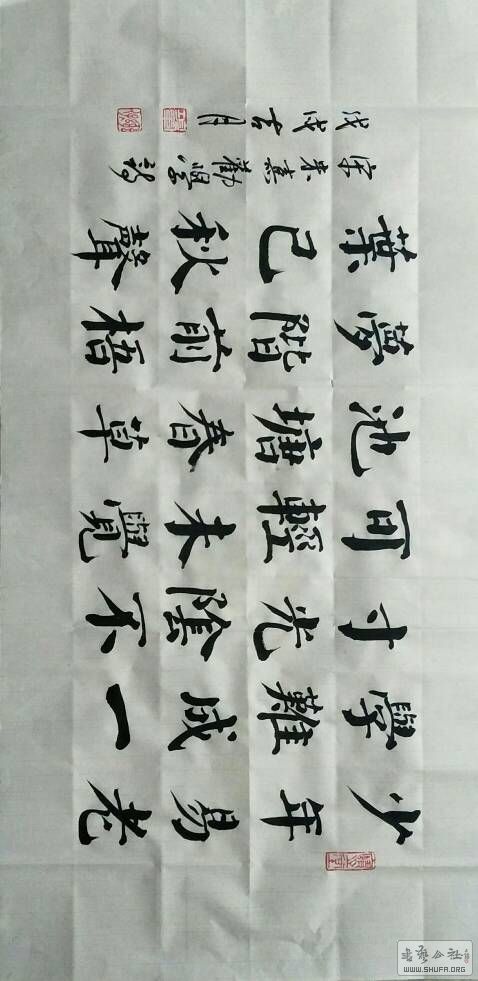 少年易老
學難成一
寸光陰不
可輕未覺
池塘春草
夢階前梧
葉已秋聲
宋朱熹勸學詩
戊戌吉月
WWW.SHUFA.ORG